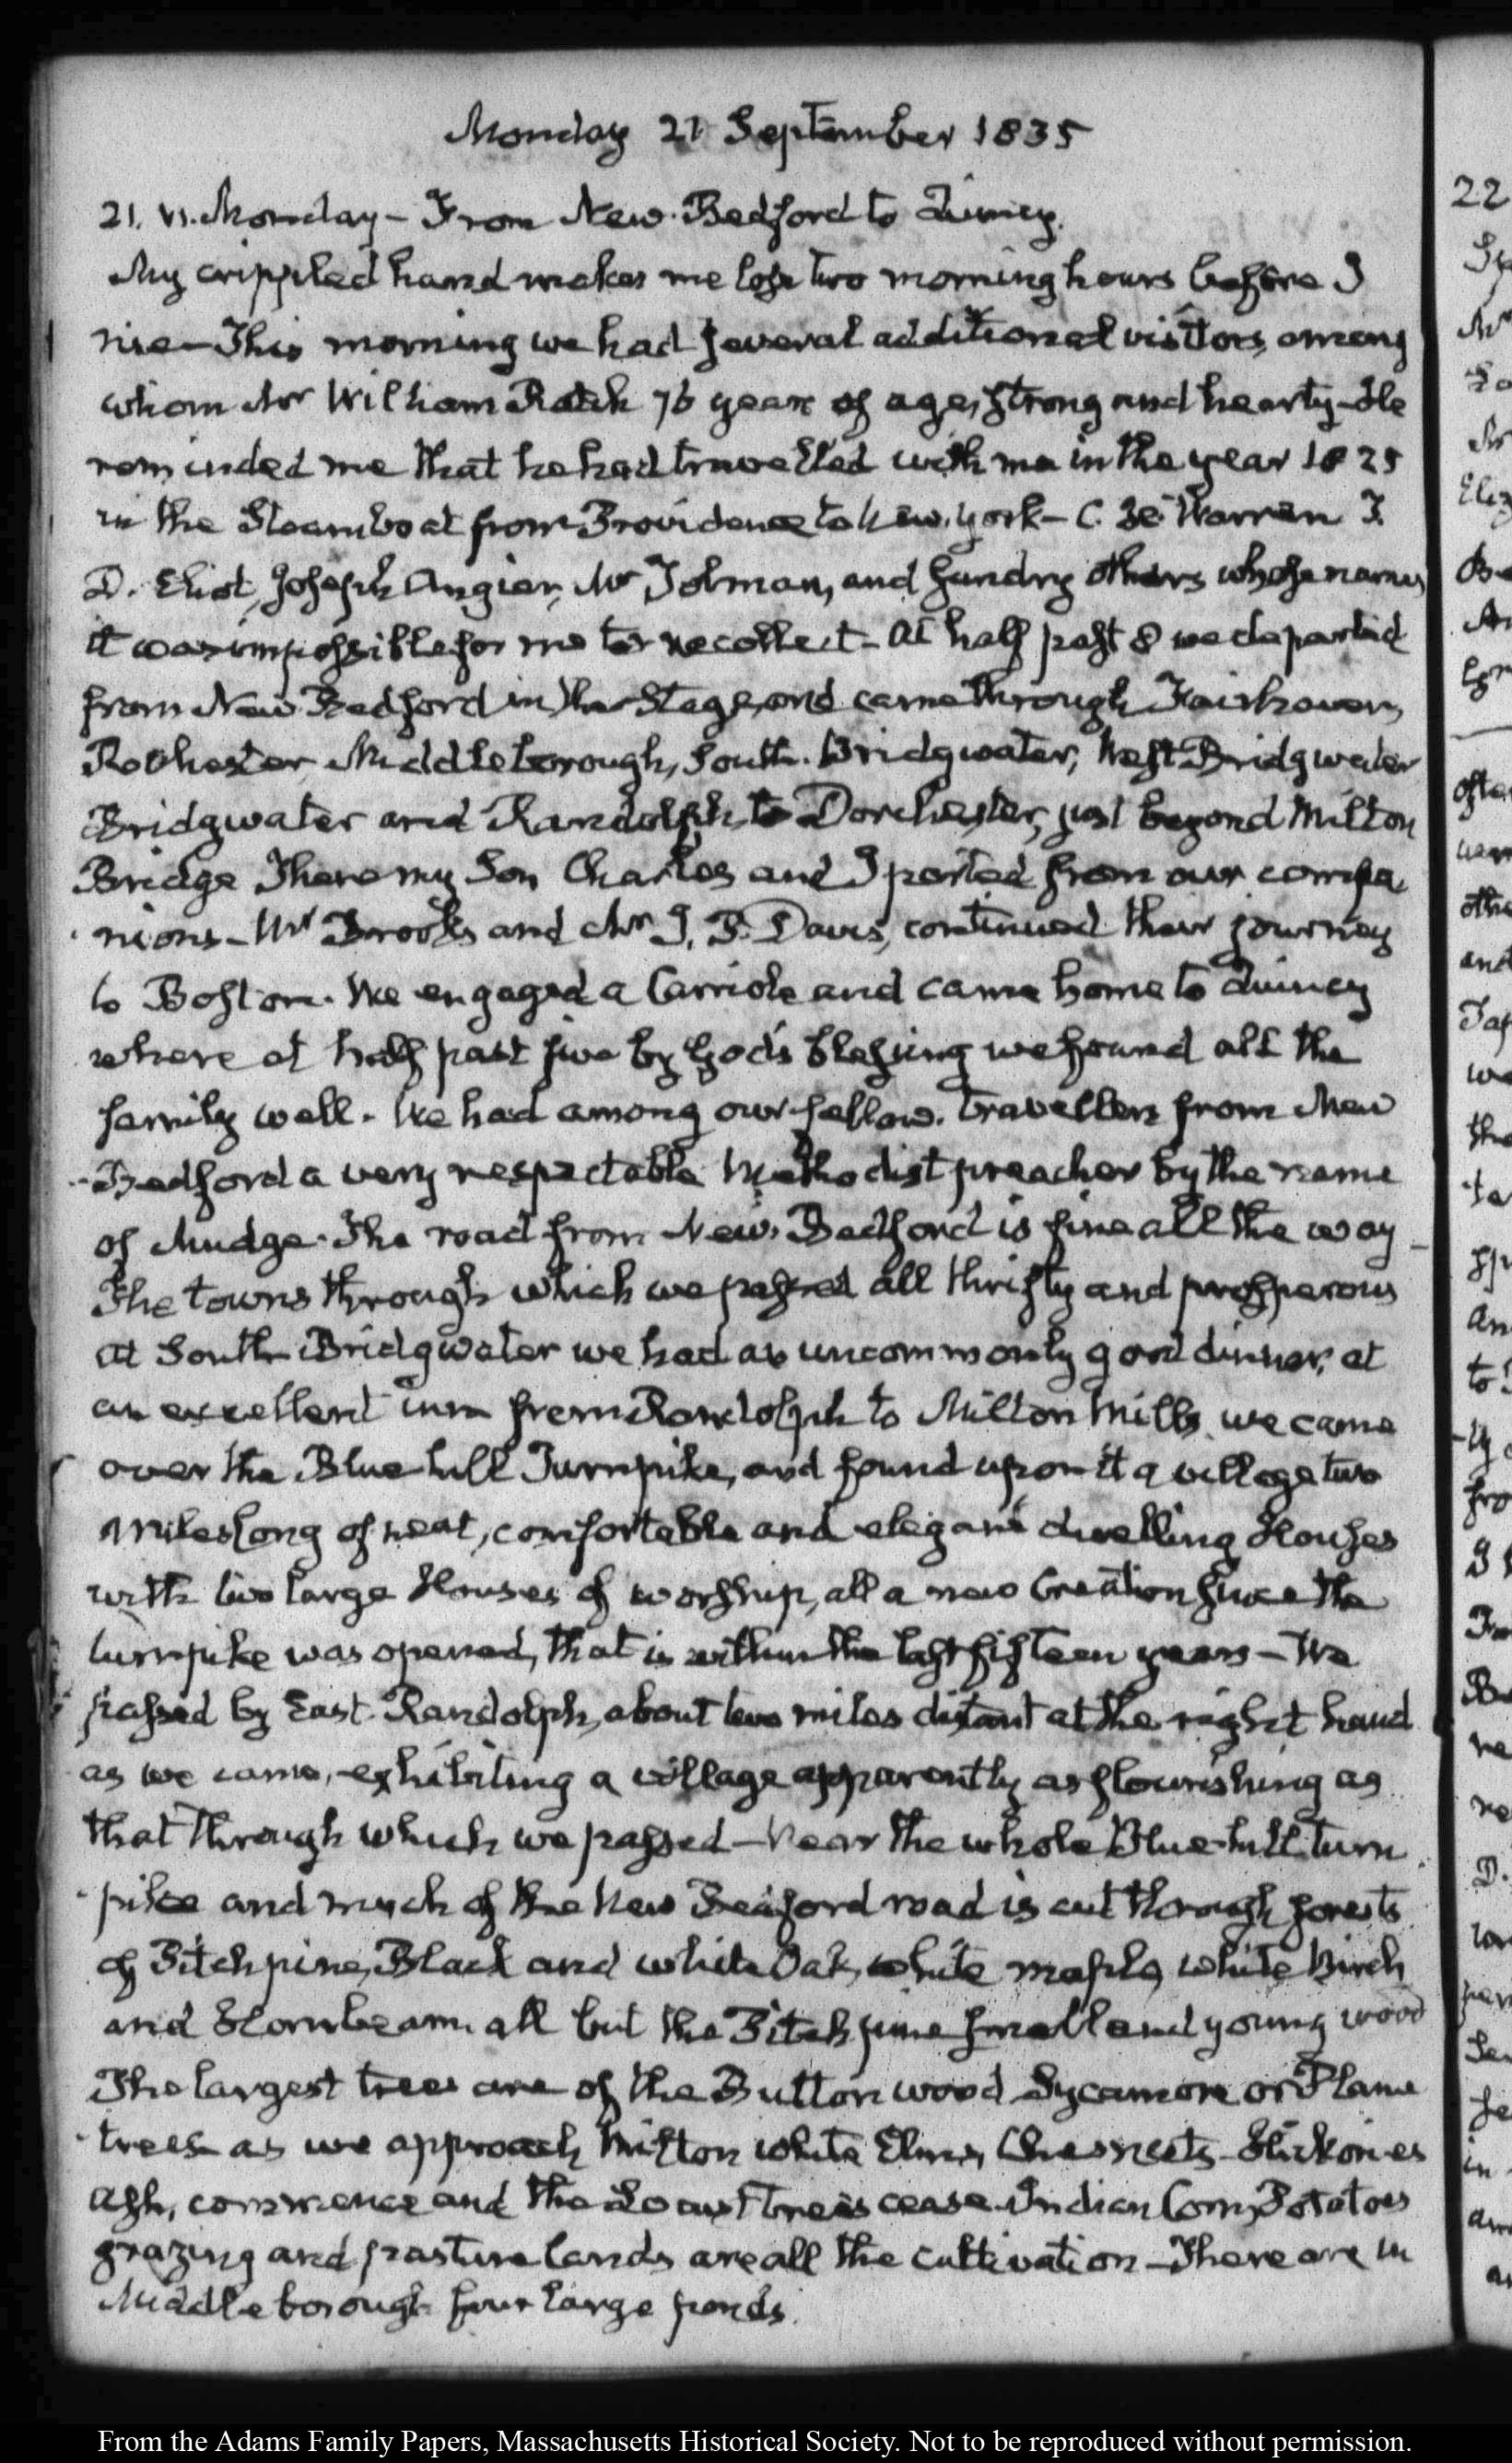 Monday 21 September 1835
21. VI. Monday — From New-Bedford to Quincy.
My crippled hand makes me lose two morning hours before I
rise — This morning we had several additional visitors, among
whom Mr William Rotch 76 years of age, strong and hearty — He
reminded me that he had travelled with me in the year 1825
in the Steamboat from Providence to New-York — C. H. Warren T.
D. Eliot, Joseph Angier, Mr Tolman, and sundry others whose names
it was impossible for me to recollect — At half past 8 we departed
from New Bedford in the Stage, and came through Fairhaven,
Rochester Middleborough, South-Bridgwater, West Bridgwater
Bridgwater and Randolph, to Dorchester, just beyond Milton
Bridge There my Son Charles and I parted from our compa-
nions — Mr Brooks and Mr I. P. Davis, continued their journey
to Boston. We engaged a Carriole and came home to Quincy
where at half past five by God's blessing we found all the
family well. We had among our fellow-travellers from New
Bedford a very respectable Methodist preacher by the name
of Mudge. The road from New-Bedford is fine all the way —
The towns through which we passed all thrifty and prosperous
At South-Bridgwater we had an uncommonly good dinner, at
an excellent inn from Randolph to Milton Mills, we came
over the Blue hill Turnpike, and found upon it a village two
miles long of neat, comfortable and elegant dwelling Houses
with two large Houses of worship, all a new Creation since the
turnpike was opened, that is within the last fifteen years — We
passed by East-Randolph, about two miles distant at the right hand
as we came, exhibiting a village apparently as flourishing as
that through which we passed — Near the whole Blue-hill turn-
pike and much of the New Bedford road is cut through forests
of Pitch pine, Black and white Oak, white maple, white Birch
and Hornbeam all but the Pitch pine small and young wood
The largest trees are of the Button wood Sycamore or Plane
trees as we approach Milton white Elms, Chesnuts
Ash, commence and the Locust trees cease. Indian Corn, Potatoes
grazing and pasture lands are all the cultivation — There are in
Middleborough four large ponds.
From the Adams Family Papers, Massachusetts Historical Society. Not to be reproduced without permission.